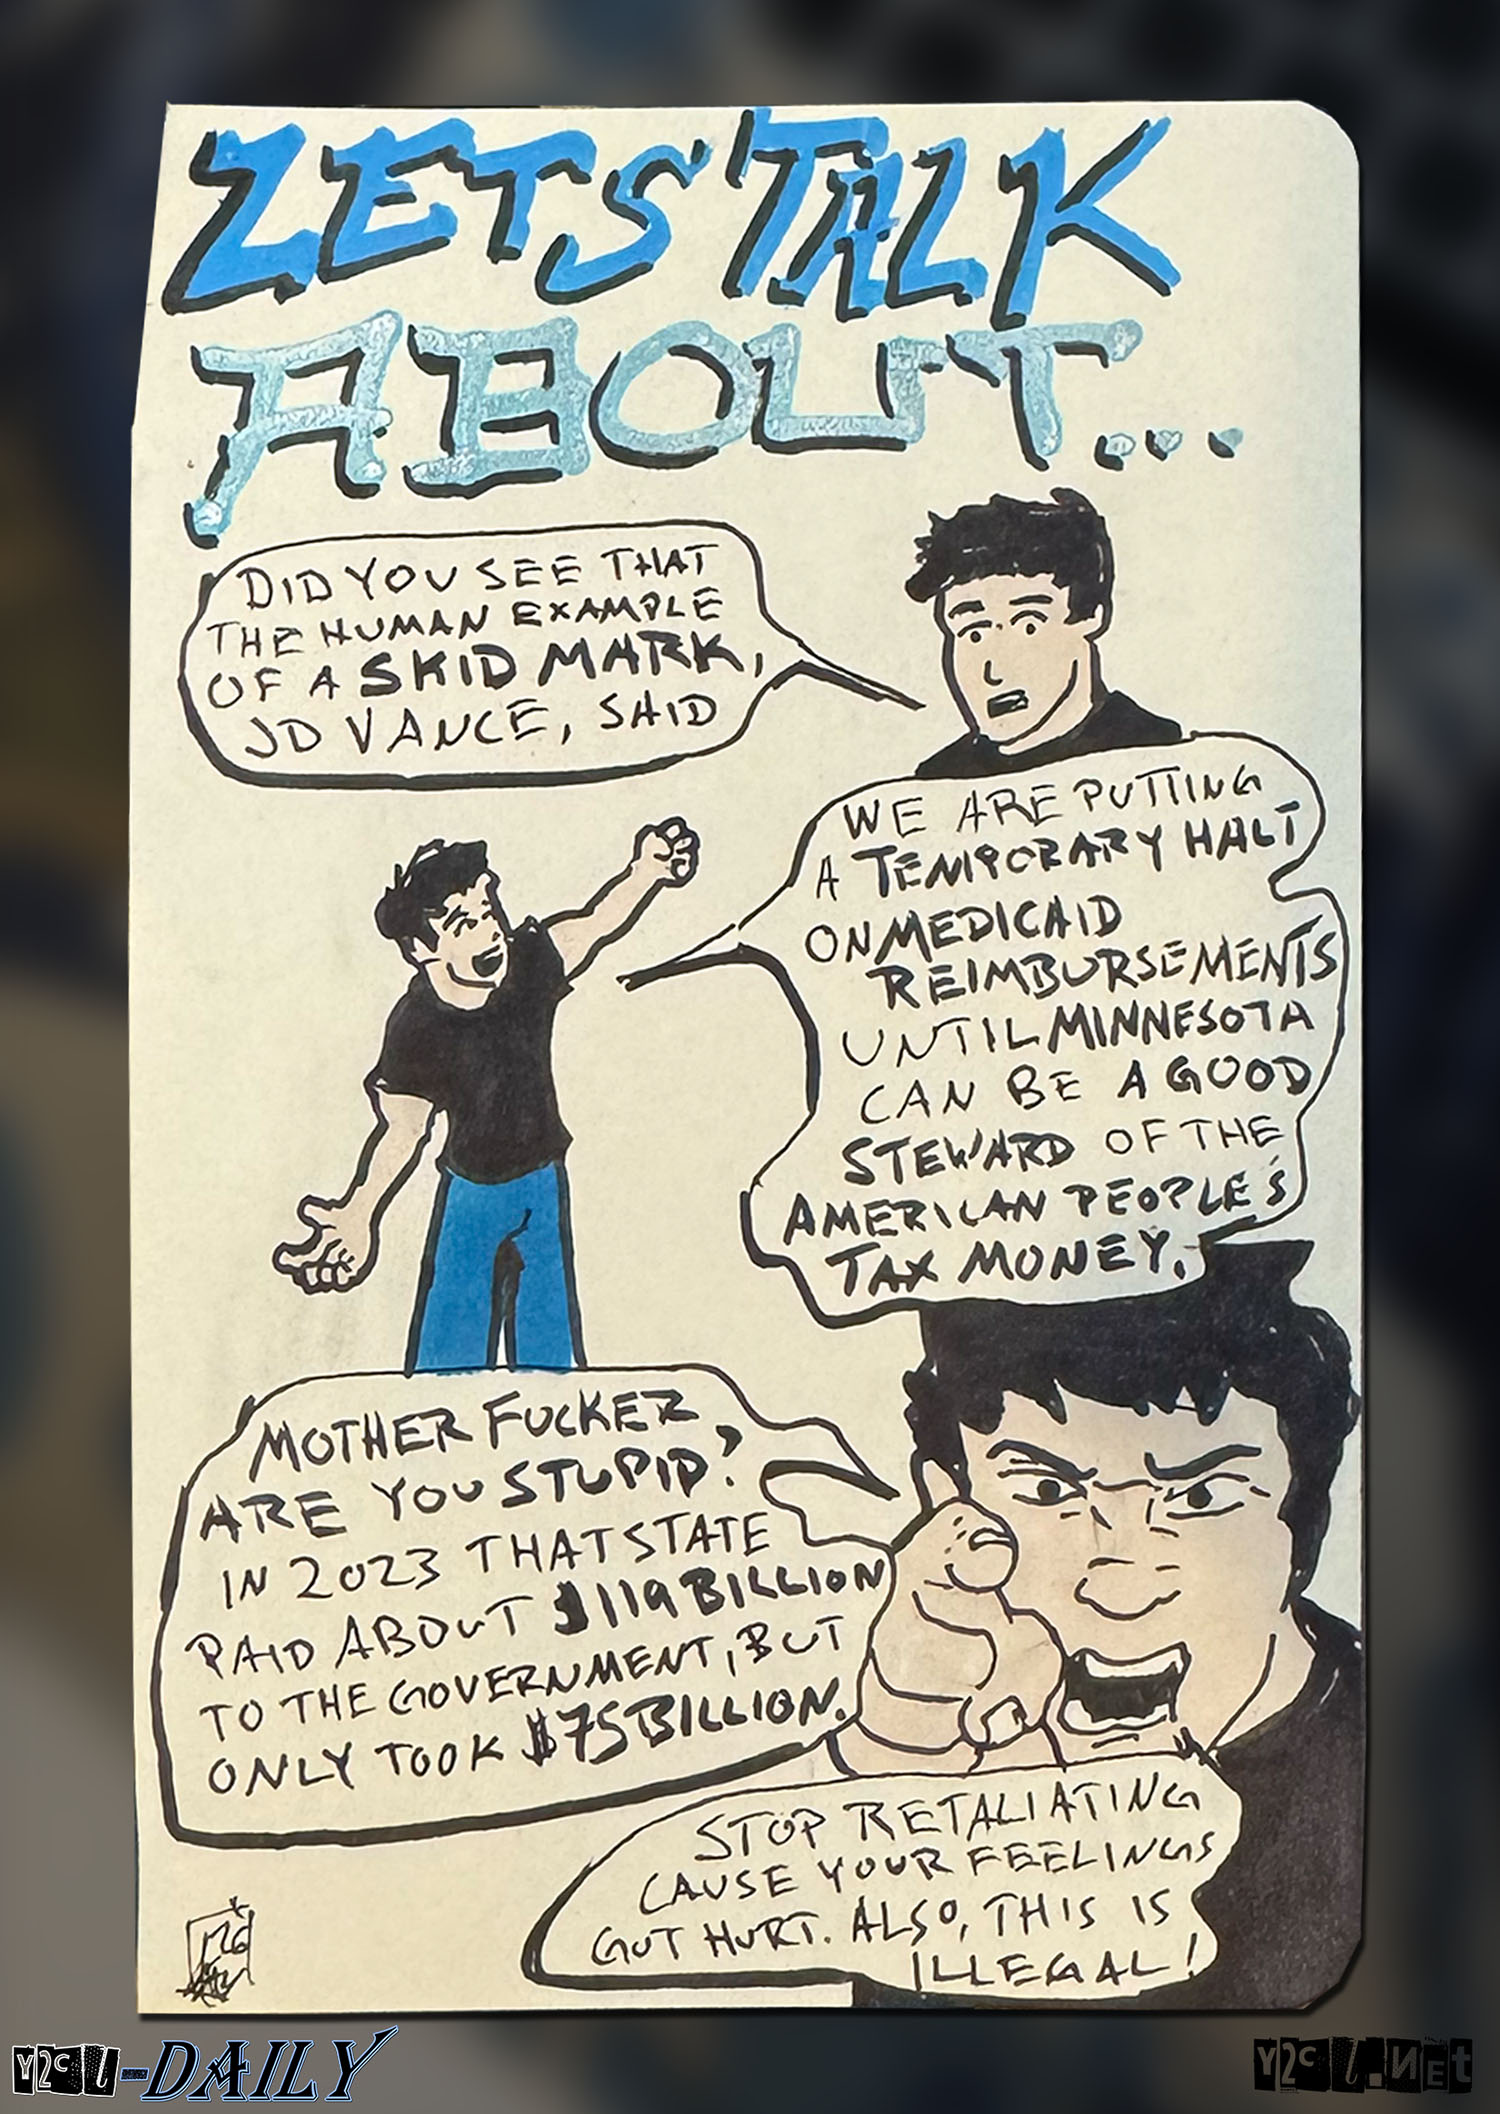 LETS TALK
ABOUT...
DID YOU SEE THAT
THE HUMAN EXAMPLE
OF A SKID MARK,
JD VANCE, SAID
WE ARE PUTTING
A TEMPORARY HALT
ON MEDICAID
REIMBURSEMENTS
UNTIL MINNESOTA
CAN BE A GOOD
STEWARD OF THE
AMERICAN PEOPLE'S
TAX MONEY.
MOTHER FUCKER
ARE YOU STUPID?
IN 2023 THAT STATE
PAID ABOUT $119 BILLION
TO THE GOVERNMENT, BUT
ONLY TOOK $75 BILLION.
STOP RETALIATING
CAUSE YOUR FEELINGS
GUT HURT. ALSO, THIS IS
ILLEGAL!
Y2CL-DAILY
Y2CL.NET